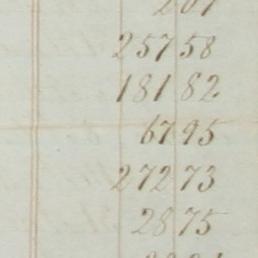 257 58
181 82
67 95
272 73
28 75